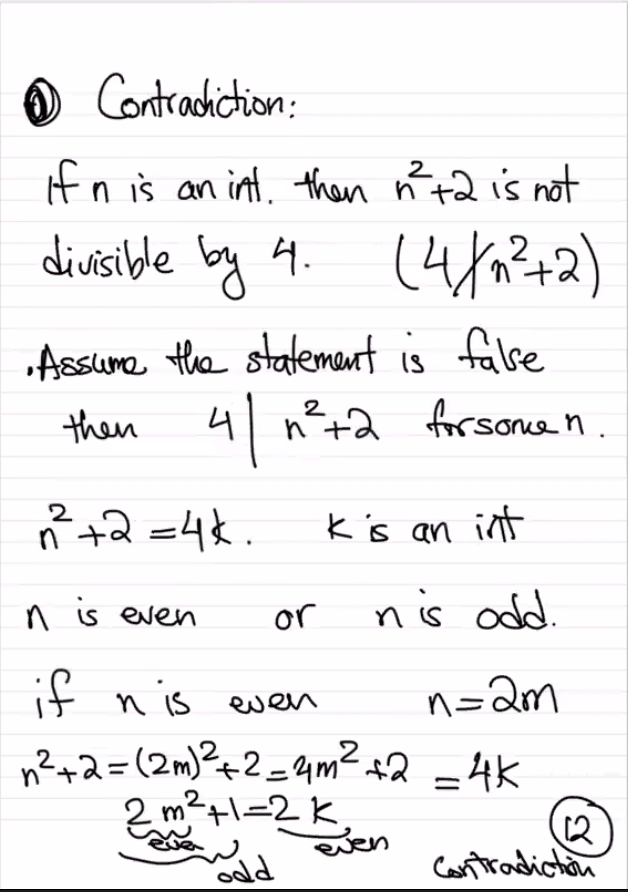 ① Contradiction:
If n is an int. then n²+2 is not
divisible by 4. (4∤n²+2)
.Assume the statement is false
then 4 | n²+2 for some n.
n²+2 = 4k. k is an int
n is even or n is odd.
if n is even n=2m
n²+2=(2m)²+2=4m²+2 = 4k
2m²+1=2k
even even
odd Contradiction
12